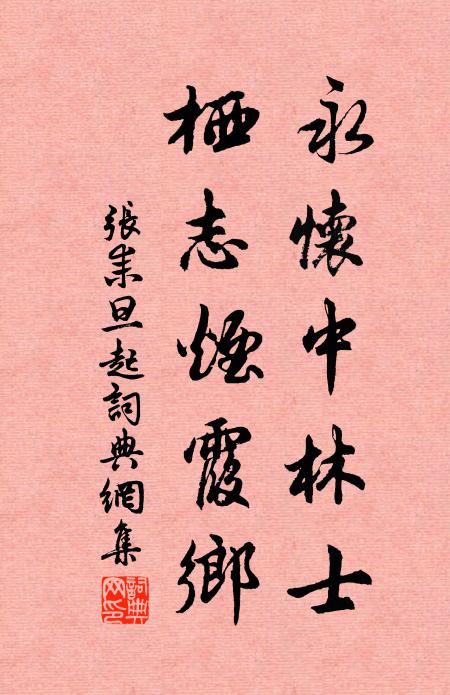 永懷中林士
栖志煙霞鄉
張耒旦起詞典網集
詞典
网印